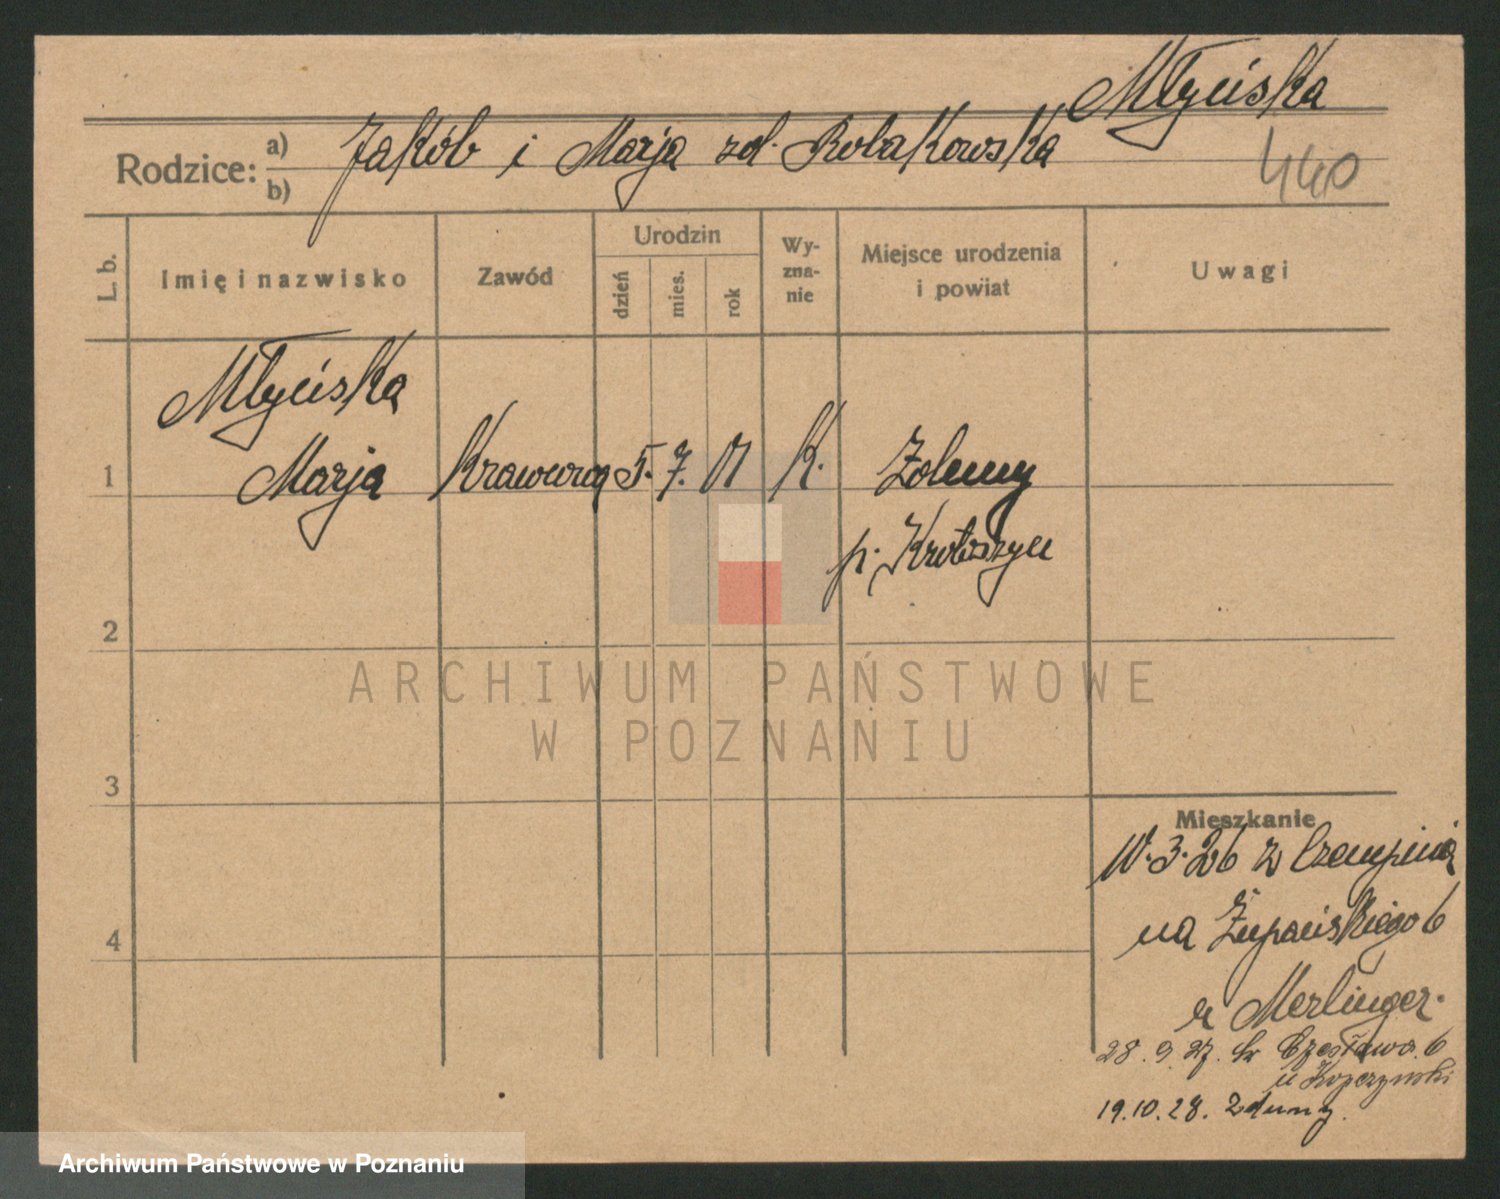 Młyńska
Rodzice: a) b) Jakób i Marja zd. Robakowska
440
L. b.
Imię i nazwisko
Zawód
Urodzin
dzień
mies.
rok
Wy-
zna-
nie
Miejsce urodzenia
i powiat
Uwagi
Młyńska
1 Marja Krawcowa 5. 7. 01 K. Zduny
p. Krotoszyn
2
ARCHIWUM PAŃSTWOWE
W POZNANIU
3
Mieszkanie
10.3.26 z Czempinia
na Żupańskiego 6
u Merlinger.
4
28.9.27. Czesława 6
u Kopczynski
19.10.28. Zduny.
Archiwum Państwowe w Poznaniu